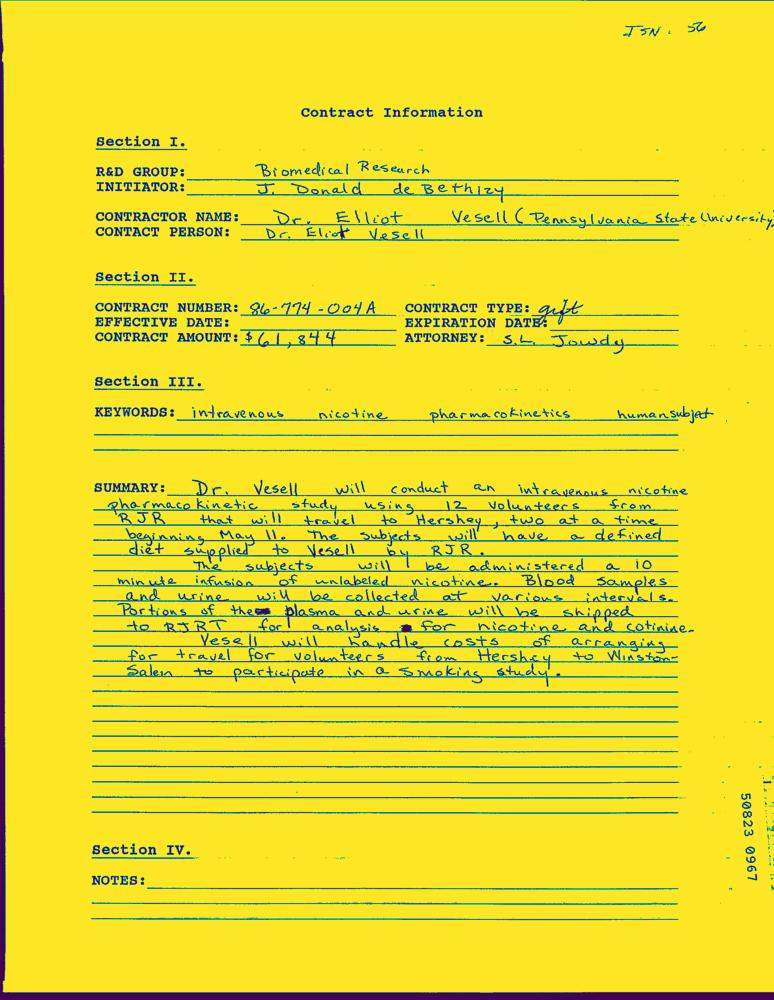 JSN. 56
Contract Information
Section I.
R&D GROUP: Biomedical Research
INITIATOR: J. Donald deBethizy
CONTRACTOR NAME: Dr. Elliot Vesell (Pennsylvania State University)
CONTACT PERSON: Dr. Eliot Vesell
Section II.
CONTRACT NUMBER: 86-774-004A CONTRACT TYPE: gift
EFFECTIVE DATE: EXPIRATION DATE:
CONTRACT AMOUNT: $61,844 ATTORNEY: S.L. Jowdy
Section III.
KEYWORDS: intravenous nicotine pharmacokinetics human subject
SUMMARY: Dr. Vesell will conduct an intravenous nicotine
pharmacokinetic study using 12 volunteers from
RJR that will travel to Hershey, two at a time
beginning May 11. The subjects will have a defined
diet supplied to Vesell by RJR.
The subjects will be administered a 10
minute infusion of unlabeled nicotine. Blood samples
and urine will be collected at various intervals.
Portions of the plasma and urine will be shipped
to RJRT for analysis for nicotine and cotinine.
Vesell will handle costs of arranging
for travel for volunteers from Hershey to Winston-
Salem to participate in a smoking study.
Section IV.
NOTES:
50823 0967